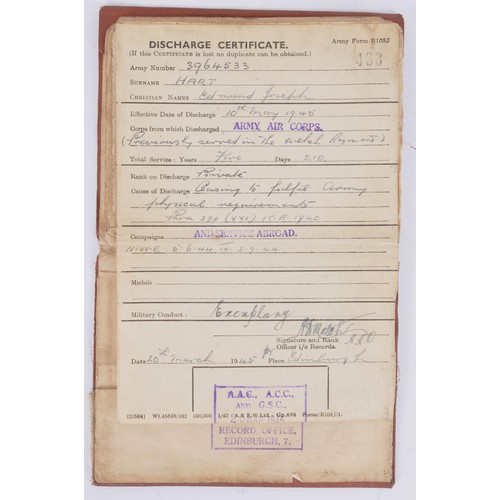 DISCHARGE CERTIFICATE.
Army Form B108J
(If this CERTIFICATE is lost no duplicate can be obtained.)
Army Number 3964533
SURNAME HART
CHRISTIAN NAMES Edmund Joseph
Effective Date of Discharge 10th May 1945
Corps from which Discharged ARMY AIR CORPS.
(Previously served in the Welch Regiment)
Total Service: Years Five Days 210.
Rank on Discharge Private
Cause of Discharge Ceasing to fulfil Army
physical requirements
Para 390 (XVI) K.R. 1940
Campaigns AND SERVICE ABROAD.
N.W.E 5-6-44 to 3-9-44
Medals
Military Conduct: Exemplary
Signature and Rank
Officer i/c Records.
Date 20th March 1945 Place Edinburgh
A.A.C., A.C.C.,
AND G.S.C.,
RECORD OFFICE,
EDINBURGH, 7.